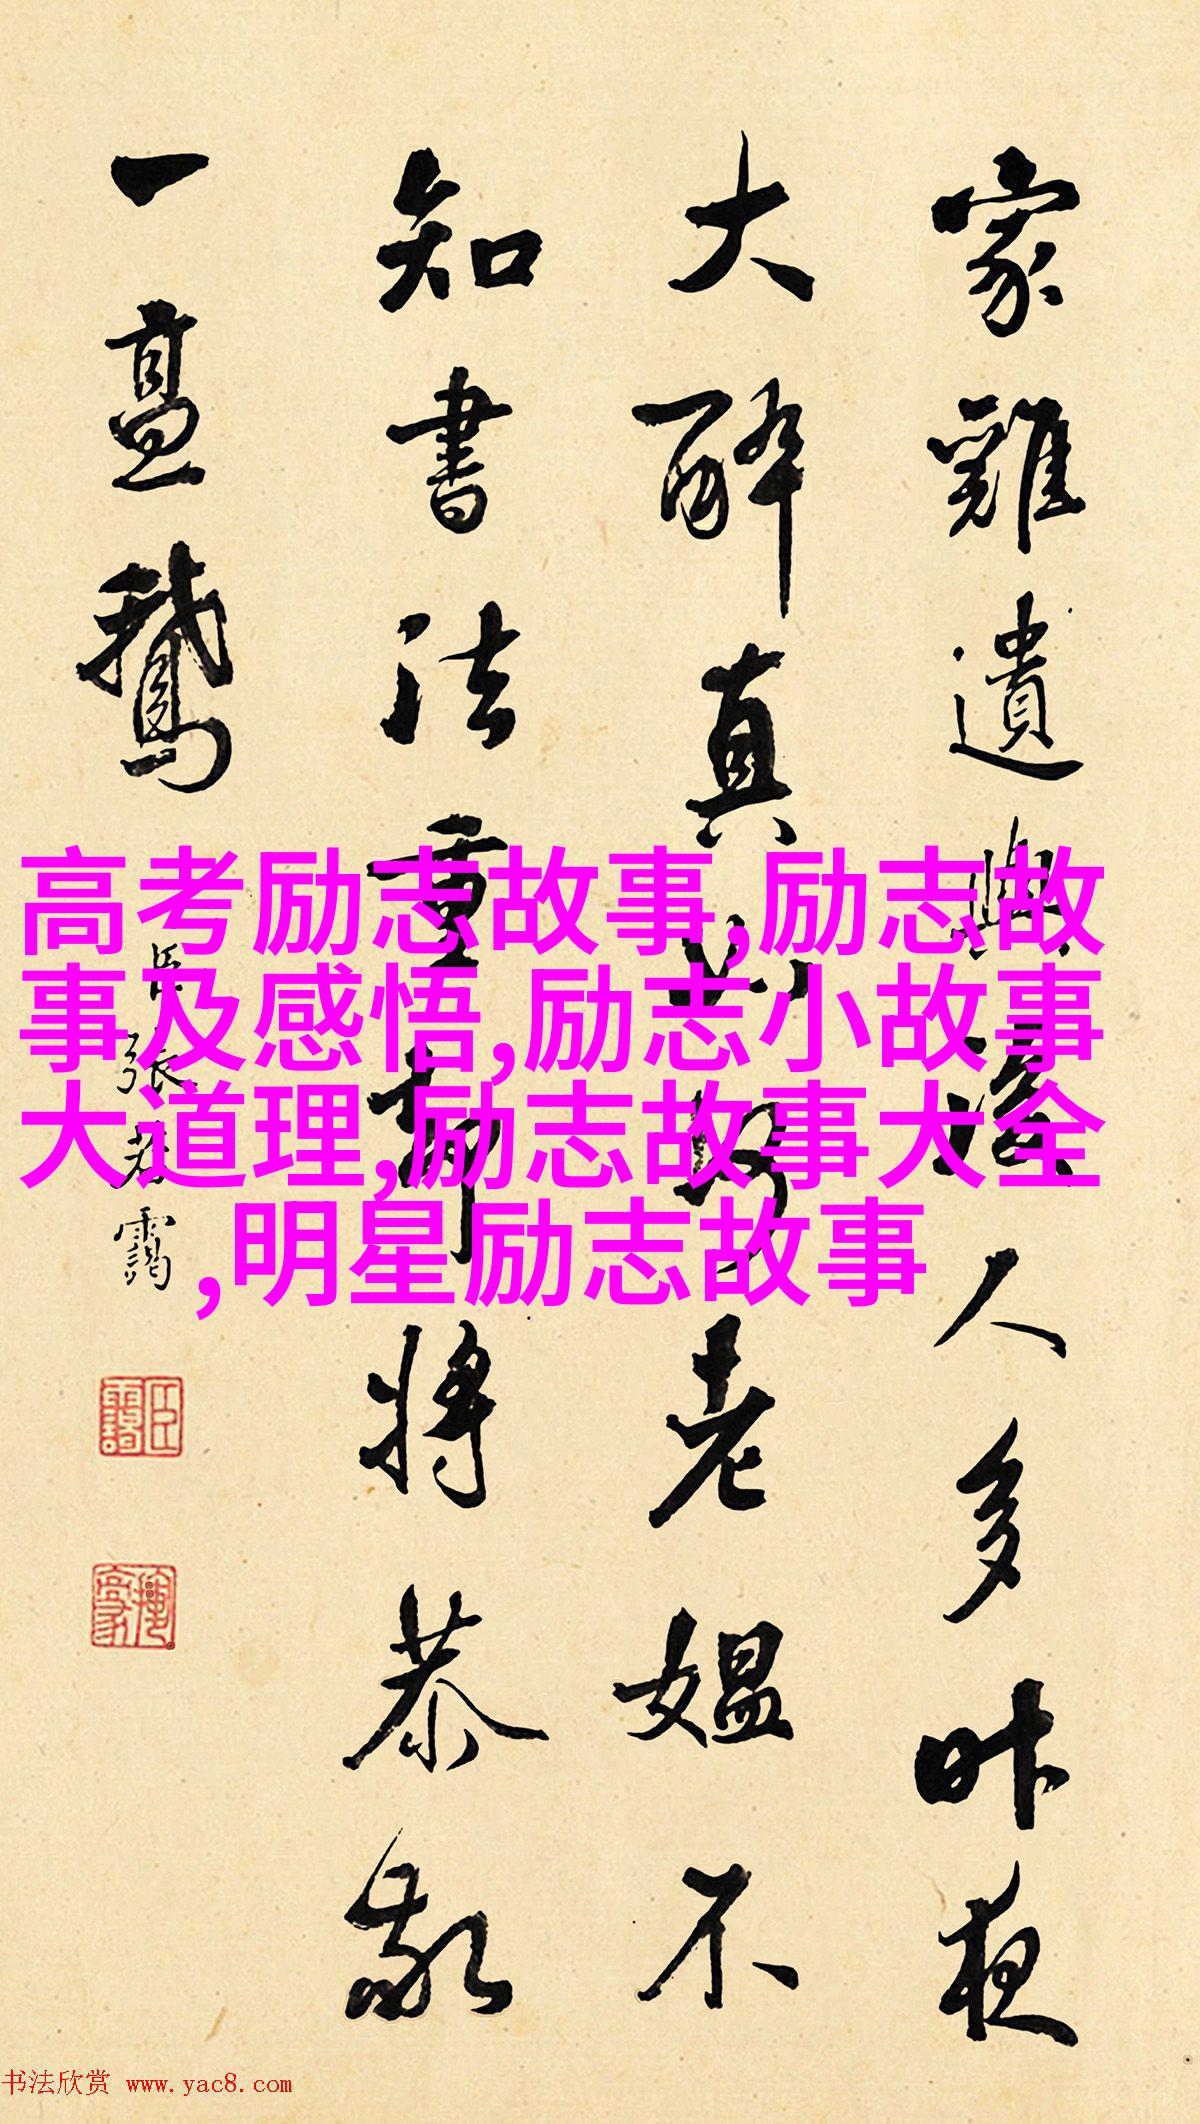 家雞遺興人多昨夜
大醉真老媼不
知書法重將恭敬
一鵞
臣張若靄
高考励志故事,励志故
事及感悟,励志小故事
大道理,励志故事大全
,明星励志故事
书法欣赏 www.yac8.com